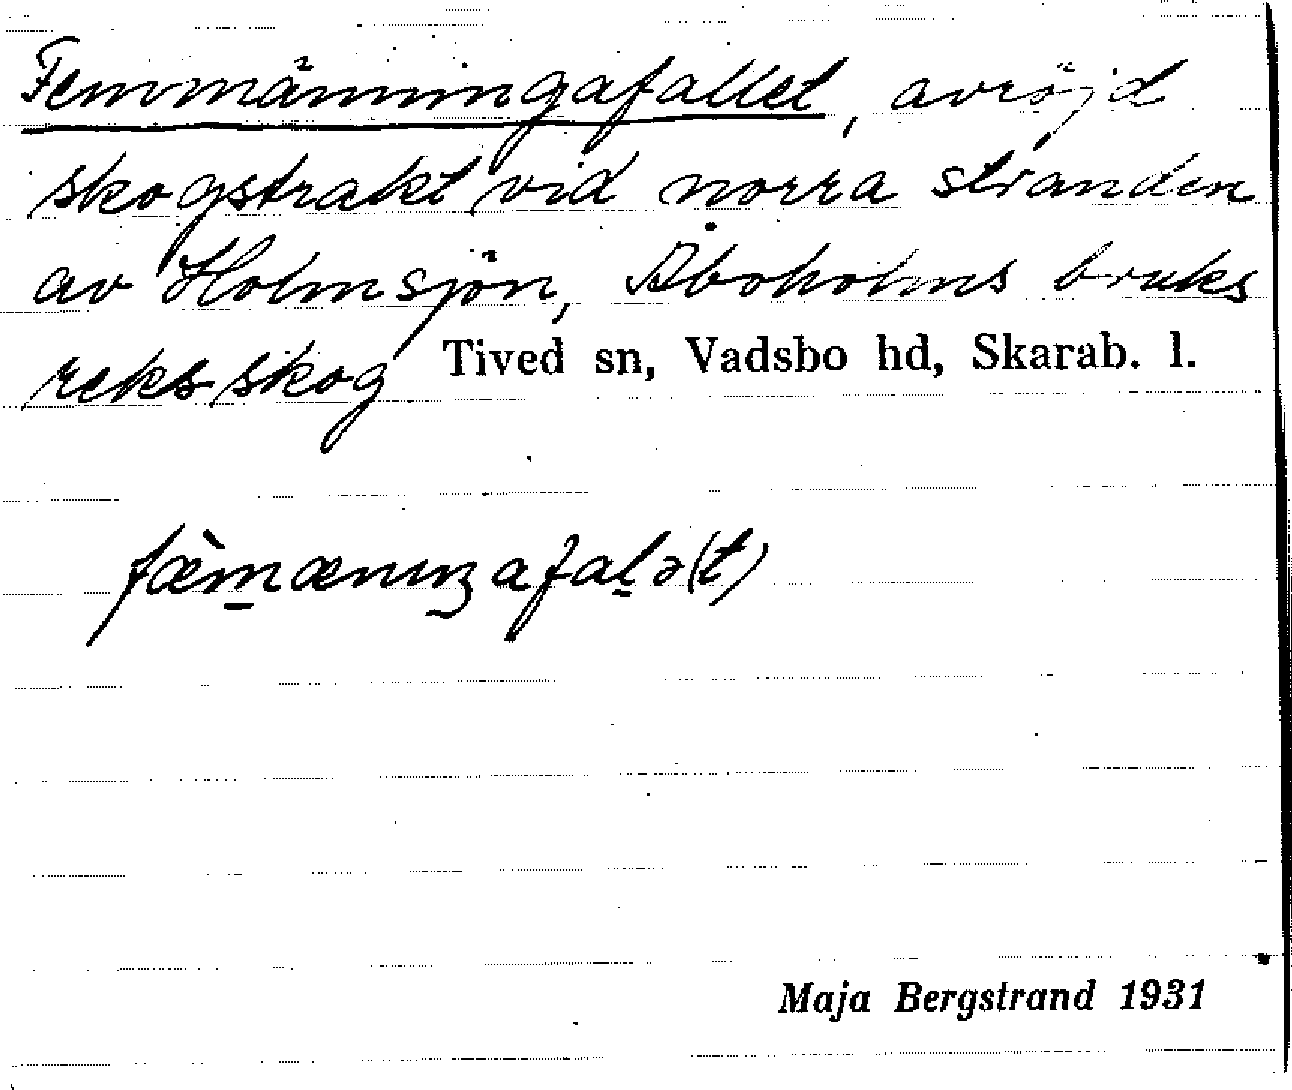 Femmänningafallet, avröjd
skogstrakt vid norra stranden
av Holmsjön, Aboholms bruks
reks skog Tived sn, Vadsbo hd, Skarab. l.
fæ̀m̲ænıŋafal̲ə(t)
Maja Bergstrand 1931